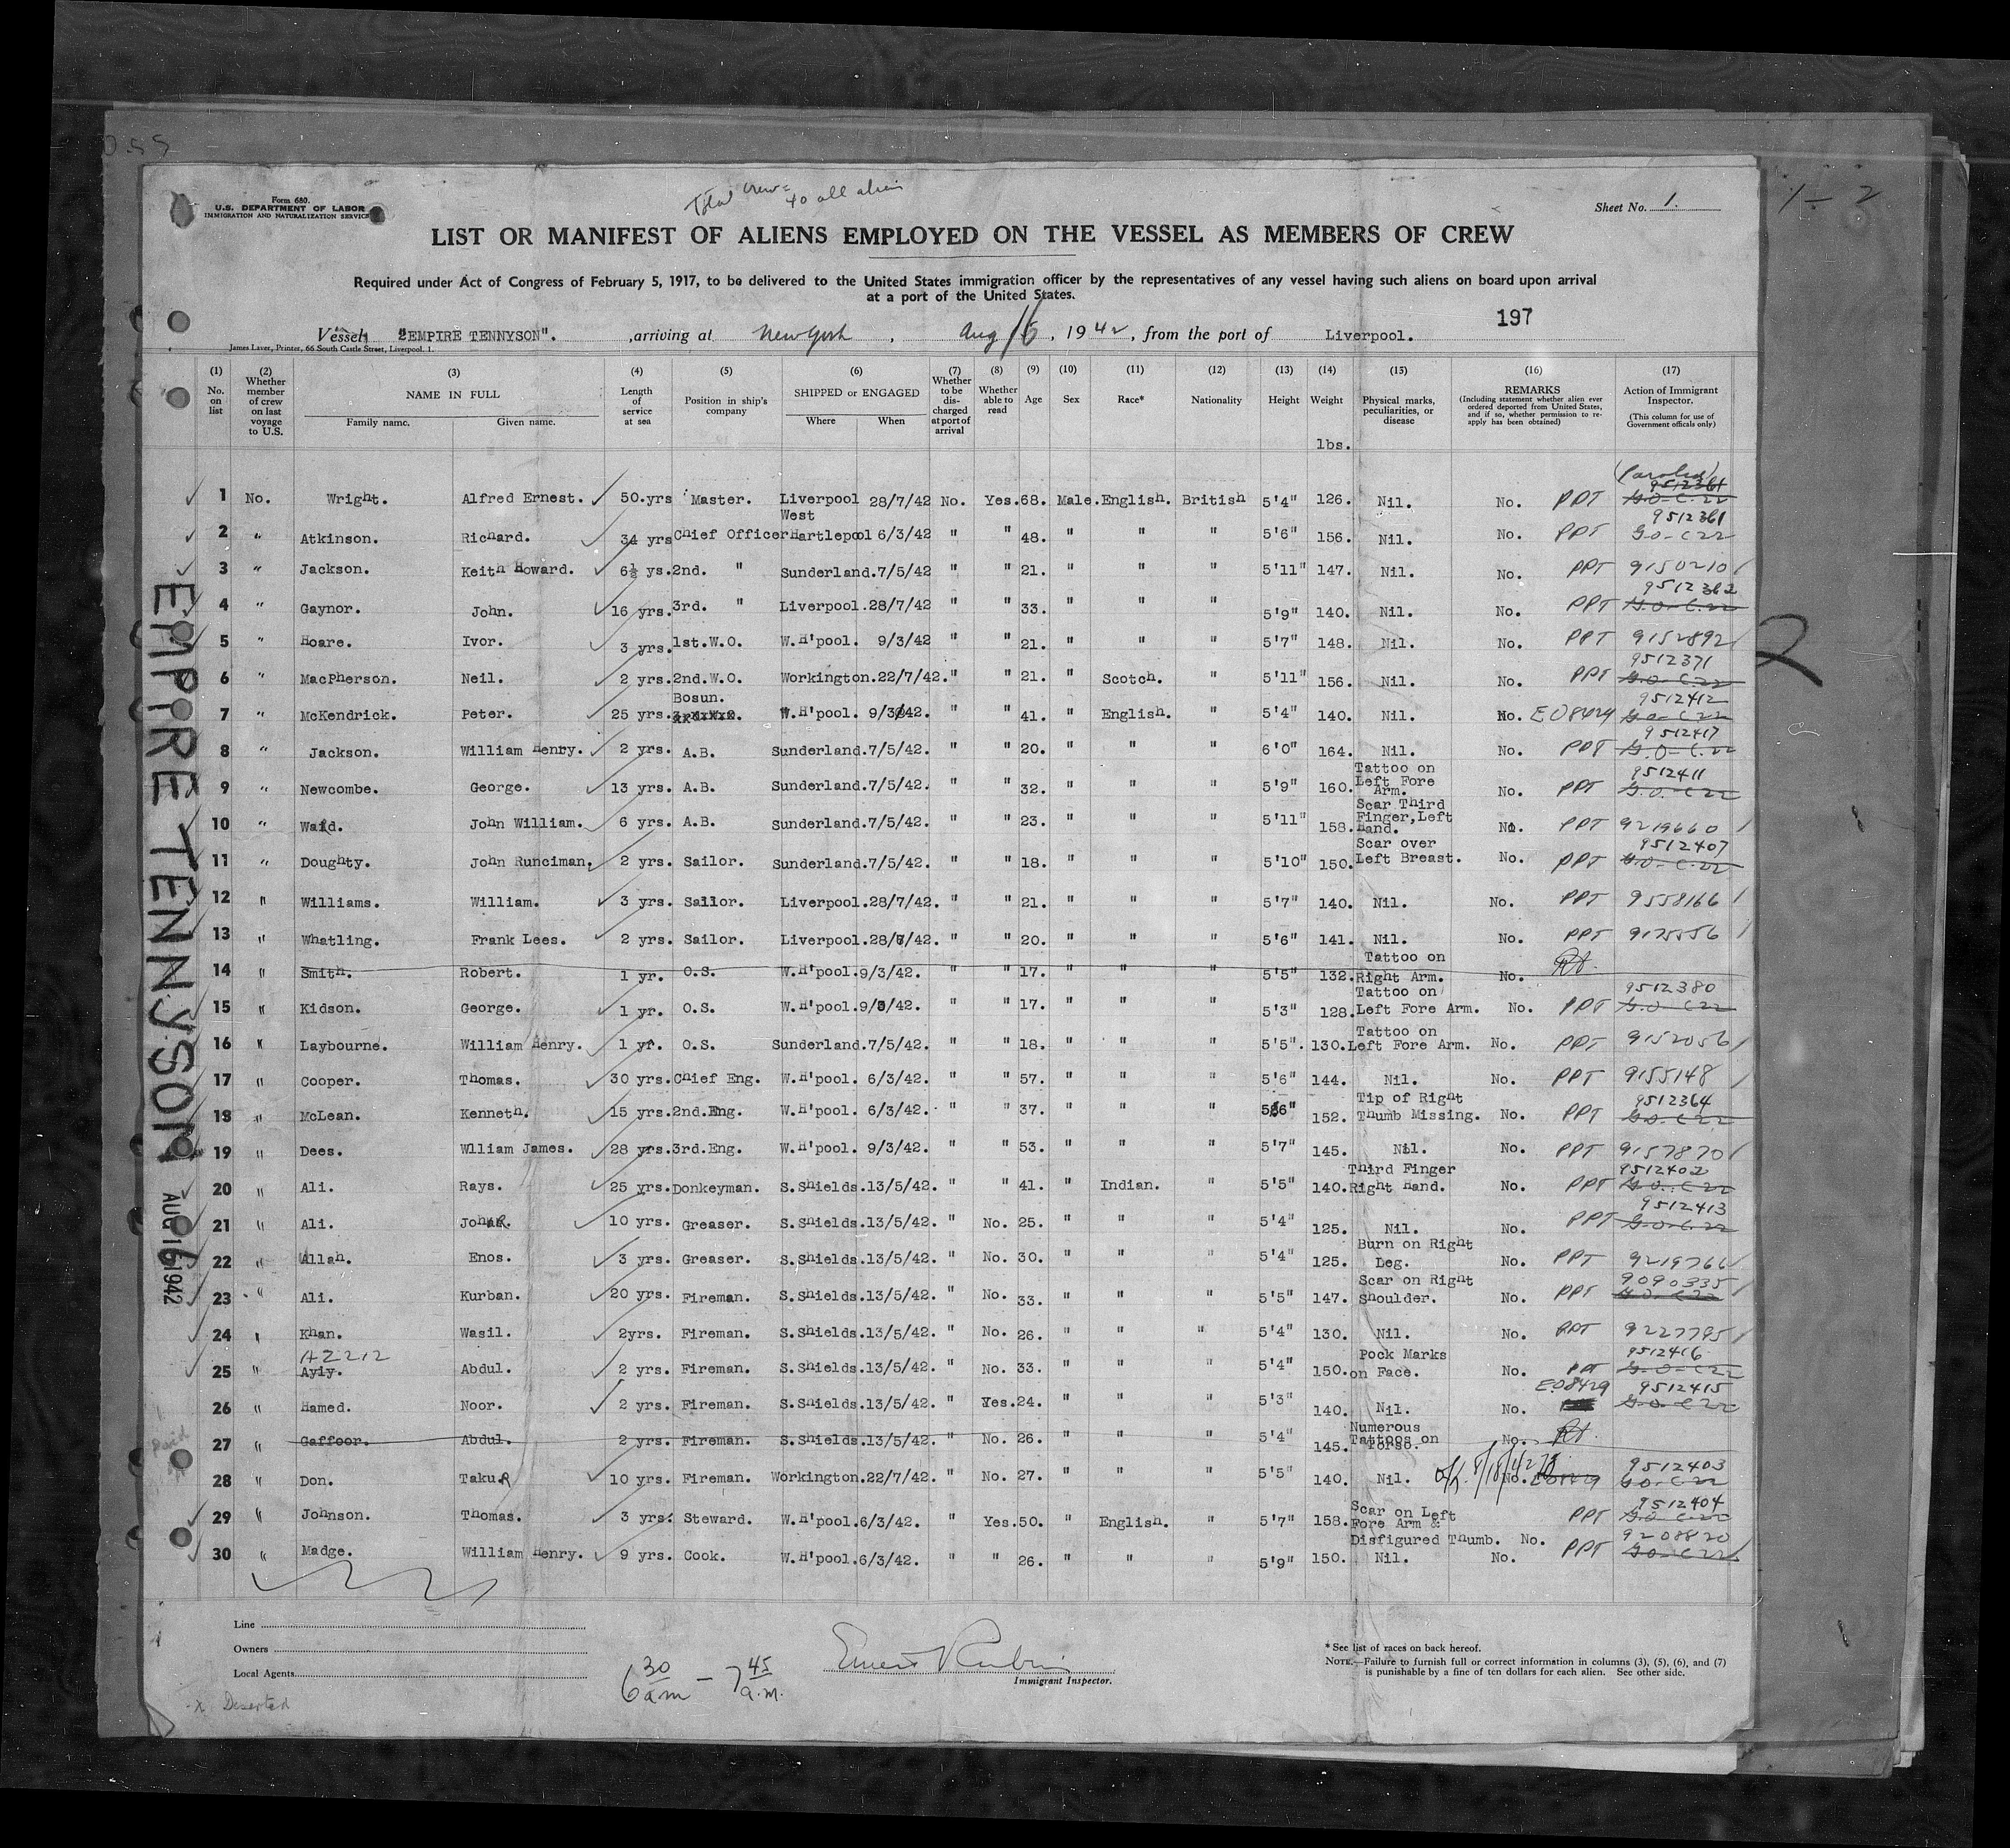 Form 680.
U.S. DEPARTMENT OF LABOR
IMMIGRATION AND NATURALIZATION SERVICE
Total crew = 40 all alien
Sheet No. 1.
1 - 2
LIST OR MANIFEST OF ALIENS EMPLOYED ON THE VESSEL AS MEMBERS OF CREW
Required under Act of Congress of February 5, 1917, to be delivered to the United States immigration officer by the representatives of any vessel having such aliens on board upon arrival
at a port of the United States.
197
Vessel "EMPIRE TENNYSON". , arriving at New York , Aug 16 , 1942 , from the port of Liverpool.
James Laver, Printer, 66 South Castle Street, Liverpool. 1.
(1) No. on list
(2) Whether member of crew on last voyage to U.S.
(3) NAME IN FULL Family name. Given name.
(4) Length of service at sea
(5) Position in ship's company
(6) SHIPPED or ENGAGED Where When
(7) Whether to be discharged at port of arrival
(8) Whether able to read
(9) Age
(10) Sex
(11) Race*
(12) Nationality
(13) Height
(14) Weight lbs.
(15) Physical marks, peculiarities, or disease
(16) REMARKS (Including statement whether alien ever ordered deported from United States, and if so, whether permission to re-apply has been obtained)
(17) Action of Immigrant Inspector. (This column for use of Government officials only)
1 No. Wright. Alfred Ernest. 50.yrs Master. Liverpool 28/7/42 No. Yes. 68. Male. English. British 5'4" 126. Nil. No. PPT (Paroled) 9512361 G.O-C-22
2 " Atkinson. Richard. 34 yrs Chief Officer West Hartlepool 6/3/42 " " 48. " " " 5'6" 156. Nil. No. PPT 9512361 G.O-C22
3 " Jackson. Keith Howard. 6½ ys. 2nd. " Sunderland. 7/5/42 " " 21. " " " 5'11" 147. Nil. No. PPT 9150210
4 " Gaynor. John. 16 yrs. 3rd. " Liverpool. 28/7/42 " " 33. " " " 5'9" 140. Nil. No. PPT 9512362 G.O-C.22
5 " Hoare. Ivor. 3 yrs. 1st.W.O. W.H'pool. 9/3/42 " " 21. " " " 5'7" 148. Nil. No. PPT 9152892
6 " MacPherson. Neil. 2 yrs. 2nd.W.O. Workington. 22/7/42. " " 21. " Scotch. " 5'11" 156. Nil. No. PPT 9512371 G.O-C22
7 " McKendrick. Peter. 25 yrs. Bosun. W.H'pool. 9/3/42. " " 41. " English. " 5'4" 140. Nil. No. EO8429 9512412 G.O-C22
8 " Jackson. William Henry. 2 yrs. A.B. Sunderland. 7/5/42. " " 20. " " " 6'0" 164. Nil. No. PPT 9512417 G.O-C.22
9 " Newcombe. George. 13 yrs. A.B. Sunderland. 7/5/42. " " 32. " " " 5'9" 160. Tattoo on Left Fore Arm. No. PPT 9512411 G.O.-C22
10 " John William. 6 yrs. A.B. Sunderland. 7/5/42. " " 23. " " " 5'11" 158. Scar Third Finger, Left Hand. No. PPT 9219660
11 " Doughty. John Runciman. 2 yrs. Sailor. Sunderland. 7/5/42. " " 18. " " " 5'10" 150. Scar over Left Breast. No. PPT 9512407 G.O-C.22
12 " Williams. William. 3 yrs. Sailor. Liverpool. 28/7/42. " " 21. " " " 5'7" 140. Nil. No. PPT 9558166
13 " Whatling. Frank Lees. 2 yrs. Sailor. Liverpool. 28/7/42. " " 20. " " " 5'6" 141. Nil. No. PPT
14 " Smith. Robert. 1 yr. O.S. W.H'pool. 9/3/42. " " 17. " " " 5'5" 132. Tattoo on Right Arm. No.
15 " Kidson. George. 1 yr. O.S. W.H'pool. 9/3/42. " " 17. " " " 5'3" 128. Tattoo on Left Fore Arm. No. PPT 9512380 G.O-C22
16 " Laybourne. William Henry. 1 yr. O.S. Sunderland. 7/5/42. " " 18. " " " 5'5". 130. Tattoo on Left Fore Arm. No. PPT 9152056
17 " Cooper. Thomas. 30 yrs. Chief Eng. W.H'pool. 6/3/42. " " 57. " " " 5'6" 144. Nil. No. PPT 9155148
18 " McLean. Kenneth. 15 yrs. 2nd.Eng. W.H'pool. 6/3/42. " " 37. " " " 5'6" 152. Tip of Right Thumb Missing. No. PPT 9512364 G.O.C22
19 " Dees. Wlliam James. 28 yrs. 3rd.Eng. W.H'pool. 9/3/42. " " 53. " " " 5'7" 145. Nil. No. PPT 9157870
20 " Ali. Rays. 25 yrs. Donkeyman. S.Shields. 13/5/42. " " 41. " Indian. " 5'5" 140. Third Finger Right Hand. No. PPT 9512402 G.O.-C22
21 " Ali. 10 yrs. Greaser. S.Shields. 13/5/42. " No. 25. " " " 5'4" 125. Nil. No. PPT 9512413 G.O-C.22
22 " Allah. Enos. 3 yrs. Greaser. S.Shields. 13/5/42. " No. 30. " " " 5'4" 125. Burn on Right Leg. No. PPT 9219766
23 " Ali. Kurban. 20 yrs. Fireman. S.Shields. 13/5/42. " No. 33. " " " 5'5" 147. Scar on Right Shoulder. No. PPT 9090335 G.O.C22
24 " Khan. Wasil. 2yrs. Fireman. S.Shields. 13/5/42. " No. 26. " " " 5'4" 130. Nil. No. PPT 9227795
25 " Ayiy. Abdul. 2 yrs. Fireman. S.Shields. 13/5/42. " No. 33. " " " 5'4" 150. Pock Marks on Face. No. PPT 9512416 G.O-C22
26 " Hamed. Noor. 2 yrs. Fireman. S.Shields. 13/5/42. " Yes. 24. " " " 5'3" 140. Nil. No. EO8429 9512415 G.O-C22
27 " Gaffoor. Abdul. 2 yrs. Fireman. S.Shields. 13/5/42. " No. 26. " " " 5'4" 145. Numerous Tattoos on Torso. No.
28 " Don. TakuR 10 yrs. Fireman. Workington. 22/7/42. " No. 27. " " " 5'5" 140. Nil. No. 9512403 G.O-C-22
29 " Johnson. Thomas. 3 yrs. Steward. W.H'pool. 6/3/42. " Yes. 50. " English. " 5'7" 158. Scar on Left Fore Arm & Disfigured Thumb. No. PPT 9512404 G.O-C22
30 " Madge. William Henry. 9 yrs. Cook. W.H'pool. 6/3/42. " " 26. " " " 5'9" 150. Nil. No. PPT 9208820 G.O-C22
EMPIRE TENNYSON
AUG 16 1942
2
Line
Owners
Local Agents
6 30 am - 7 45 a.m.
Ernest Rubin
Immigrant Inspector.
* See list of races on back hereof.
NOTE.—Failure to furnish full or correct information in columns (3), (5), (6), and (7)
is punishable by a fine of ten dollars for each alien. See other side.
x Deserted